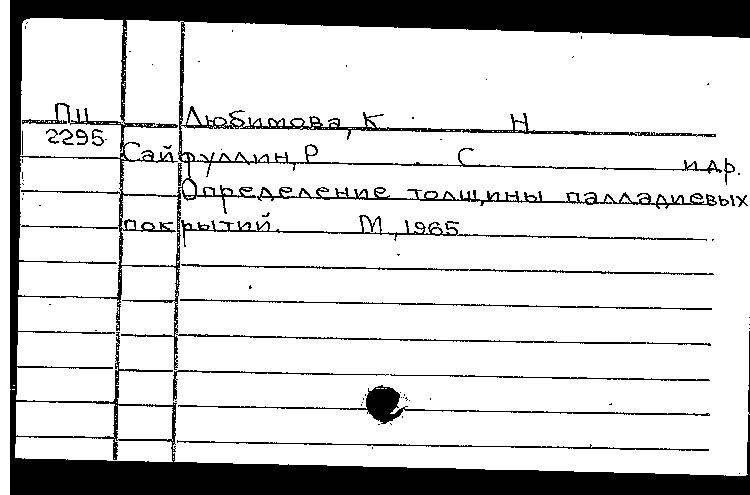 ПЦ Любимова, К Н
2295
Сайфуллин, Р С и др.
Определение толщины палладиевых
покрытий. М., 1965